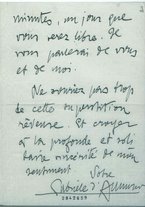 minutes, un jour que
vous serez libre. Je
vous parlerai de vous
et de moi.
Ne souriez pas trop
de cette superstition
rêveuse. Et croyez
à la profonde et soli-
taire sincérité de mon
sentiment
Votre
Gabriele d'Annunzio